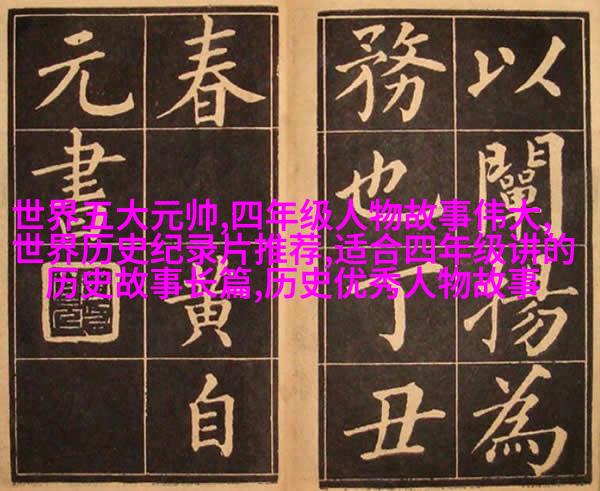 世界五大元帅,四年级人物故事伟大,
世界历史纪录片推荐,适合四年级讲的
历史故事长篇,历史优秀人物故事
以闡揚為
務也丁丑
春黃自
元書